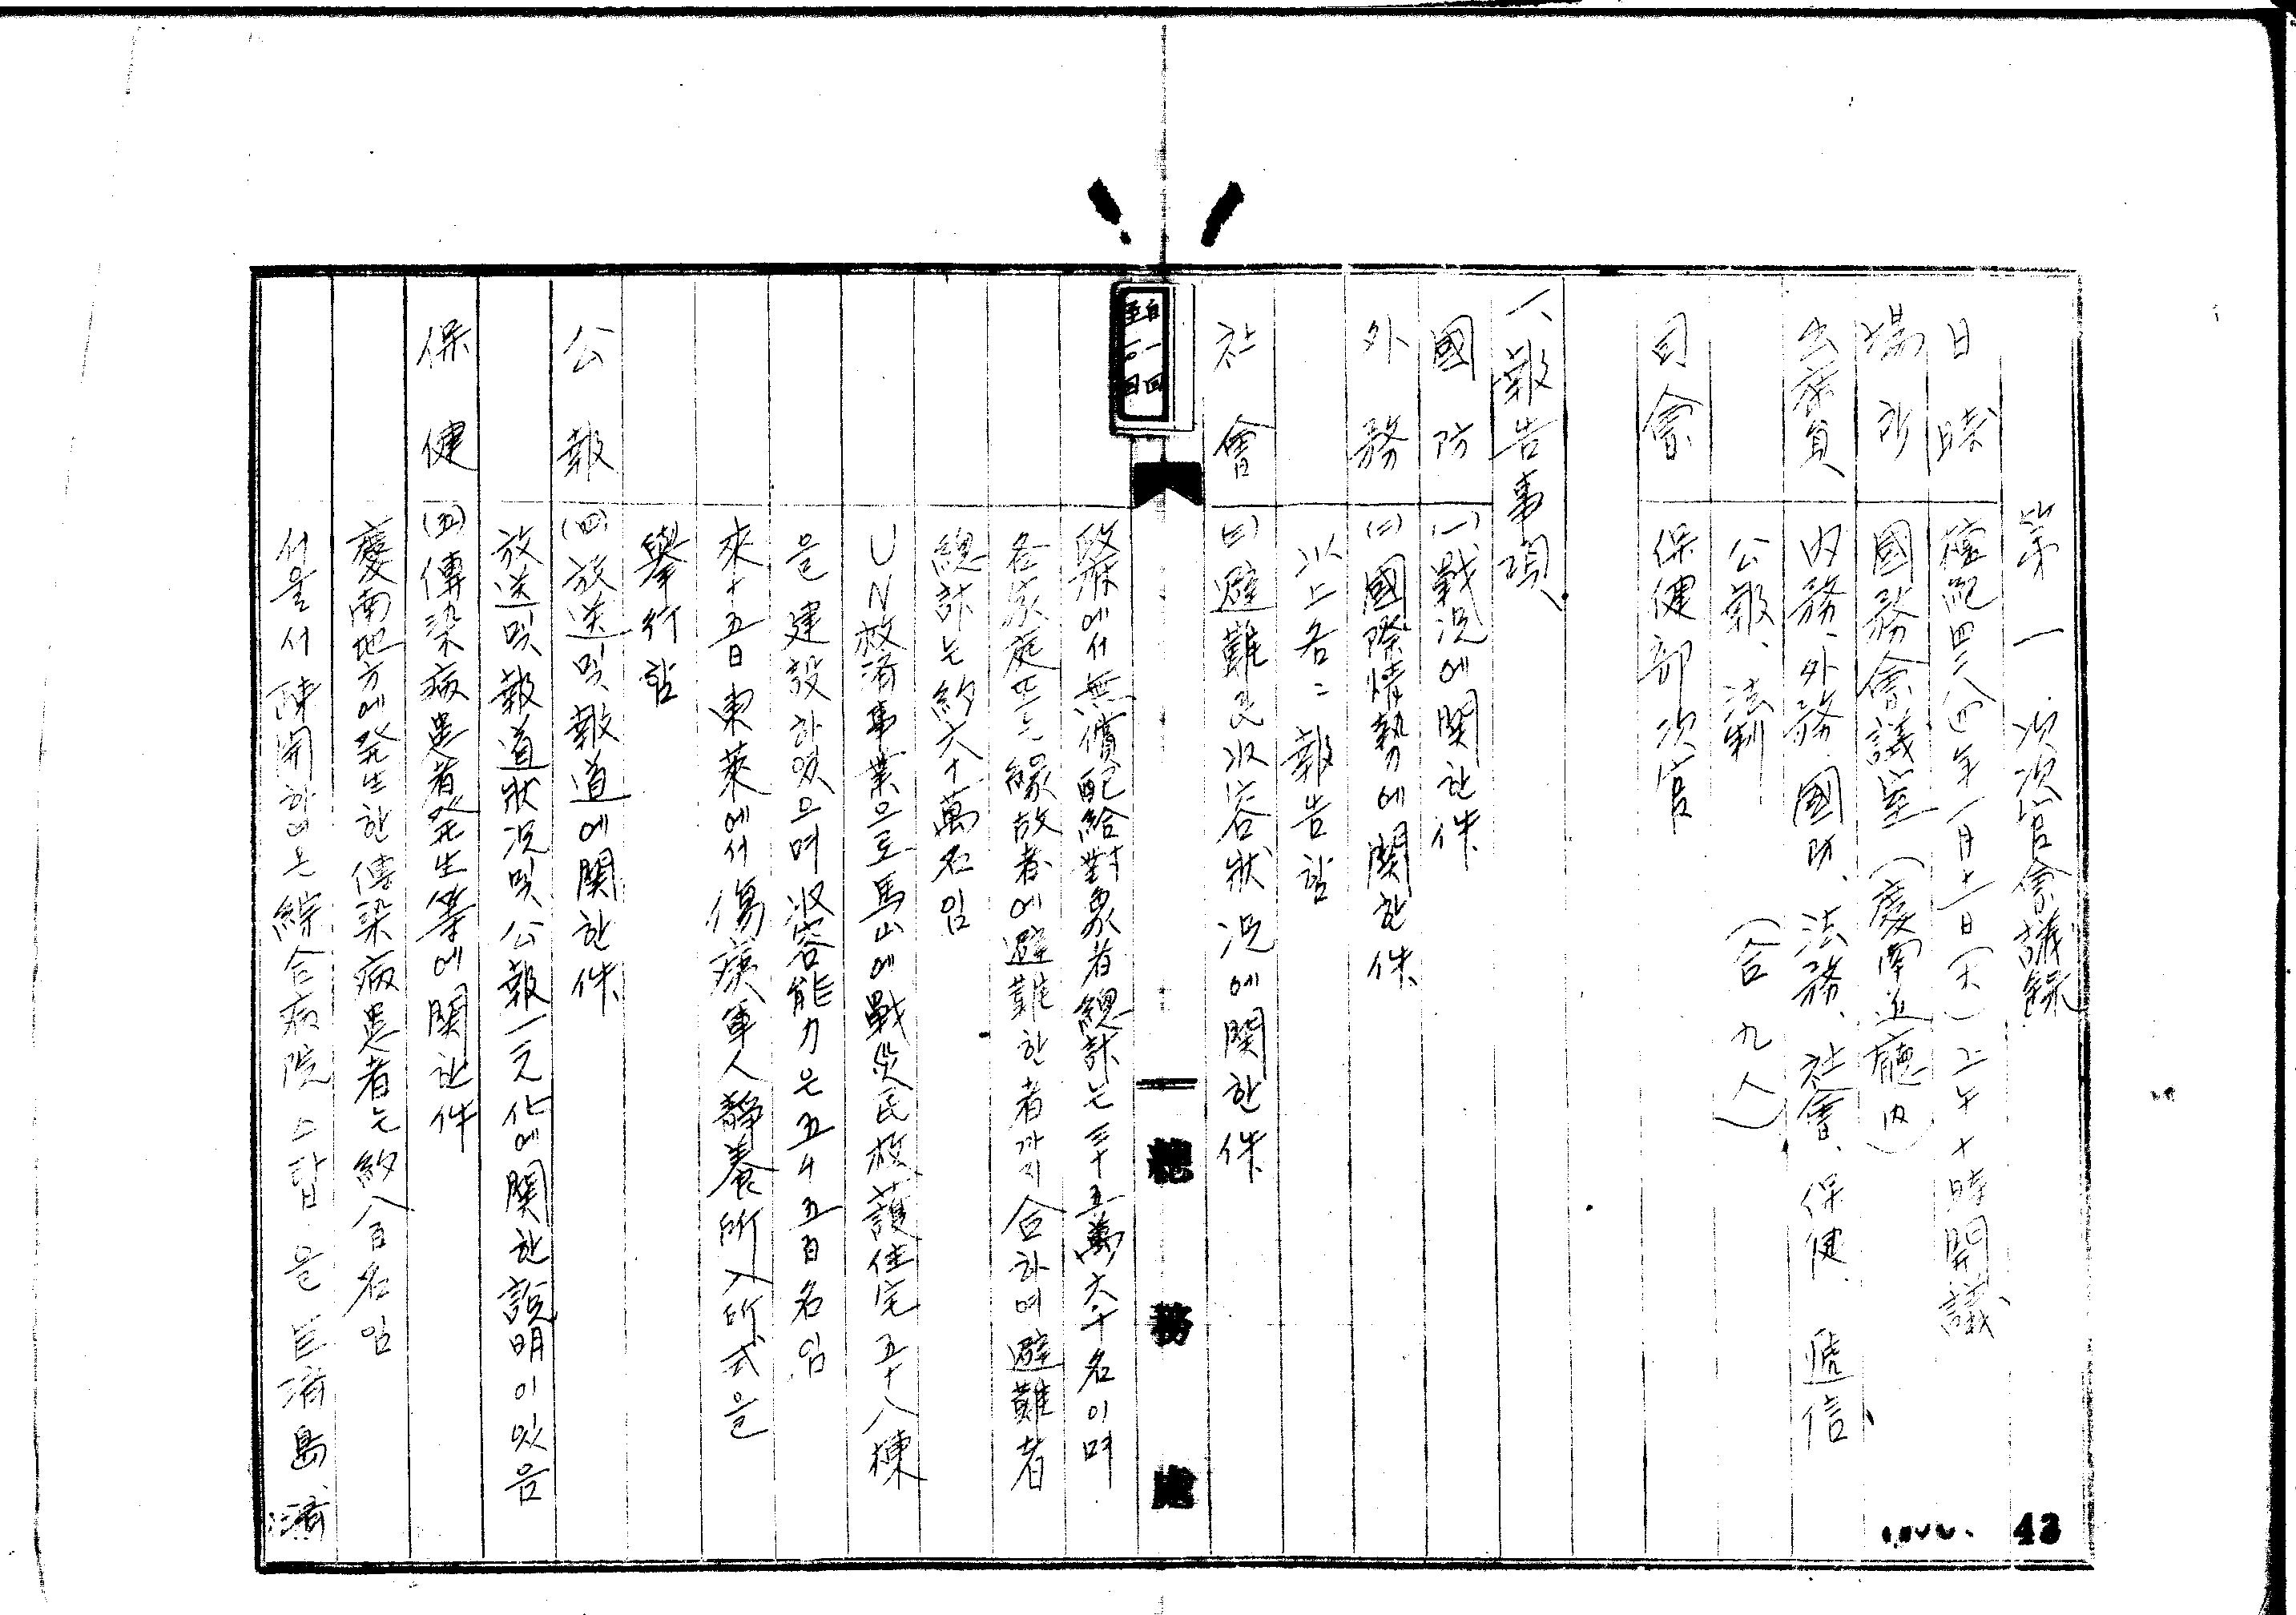 第一次次官會議錄
日時 檀紀四二八四年一月十一日(木)上午十時開議
場所 國務會議室(慶南道廳內)
出席員 內務、外務、國防、法務、社會、保健、遞信、
公報、法制 (合九人)
司會 保健部次官
一、報告事項
國防 (一)戰況에關한件
外務 (二)國際情勢에關한件
以上各々報告함
社會 (三)避難民收容狀況에關한件
自一回
至一〇一回
總務處
에서無償配給對象者總計는三十五萬六千名이며
各家庭또는緣故者에避難한者까지合하여避難者
總計는約六十萬名임
UN救濟事業으로馬山에戰災民救護住宅五十八棟
을建設하였으며收容能力은五千五百名임
來十五日東萊에서傷痍軍人靜養所入所式을
擧行함
公報 (四)放送및報道에關한件
放送및報道狀況및公報一元化에關한說明이있음
保健 (五)傳染病患者發生等에關한件
慶南地方에發生한傳染病患者는約八百名임
서울서陳開한 綜合病院스탑을巨濟島、濟
43